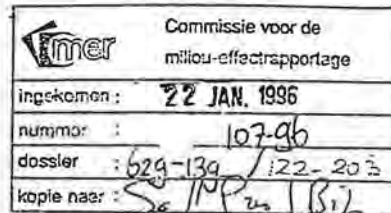 mer
Commissie voor de
milieu-effectrapportage
ingekomen : 22 JAN. 1996
nummer : 107-96
dossier : 629-139 / 122-203
kopie naar :